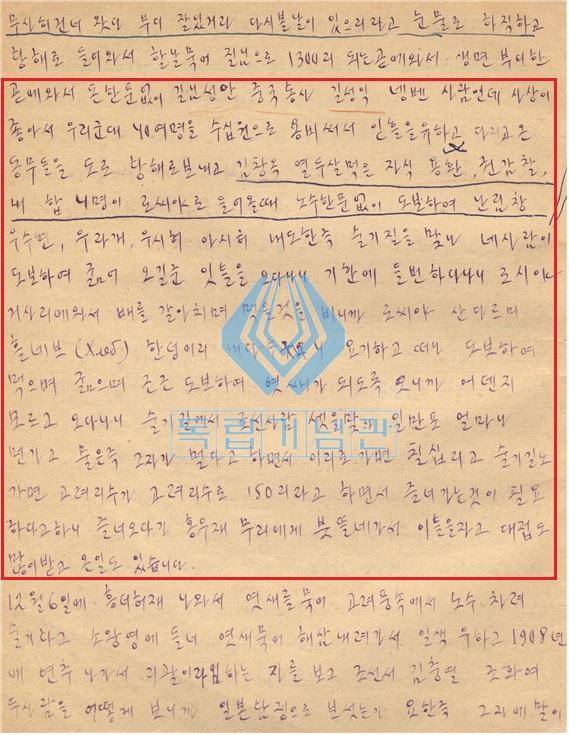 무사히 건너 왓다 부디 잘잇거라 다시볼날이 잇으리라고 눈물로 하직하고
황해로 들어와서 할날묵어 길님으로 1300리 되는곧에와서 생면 부지한
곧에와서 돈한푼없이 길님성안 중국통사 길성익 넹벤 사람인데 사상이
좋아서 우리군대 40여명을 수십원으로 용비써서 인흘을유하고 다리고온
동무들을 도로 황해로보내고 김창옥 열두살먹은 자식 용환, 권감찰,
내 합 4명이 로씨아로 들어올때 노수한푼없이 도보하여
우수현, 우라개, 우시허 아시허 내도한즉 슬기질을 맞나 네사람이
도보하여 굶어 오길준 잇틀을 오다나니 기한에 들번하다나니 로시아
거사리에와서 배를 갈아치며 먹을것을 비니까 로씨아 산디르미
흘네브 (Хлеб) 한덩어리 요기하고 떠나 도보하여
먹으며 굶으며 근근 도보하여 엿쌔가 되도록 오니까 어덴지
모르고 오다나니 슬기길에서 조선사람 셋을맞나 일만포 얼마나
먼가고 물은즉 그자가 멀다고 하면서 이리로가면 필십리고 슬기길노
가면 고려리수가 고려리수로 150리라고 하면서 즐너가는것이 필요
하다고하니 즐너오다가 홍우재 무리에게 붓뜰네가서 이틀을자고 대접도
많이받고 온일도 있습니다.
12월6일에 흥더허재 나와서 엿새를 묵어 고려풍속에서 노수 차려
슬기타고 소왕영에 들너 엿새묵어 해삼내려가서 일색 유하고 1908년
에 연추 나가서 리팔이라 하는 자를 보고 조선서 김충렬 조화여
두사람을 어떻게 보니까 일본밤정으로 보섯는가 요한즉 그자에 말이